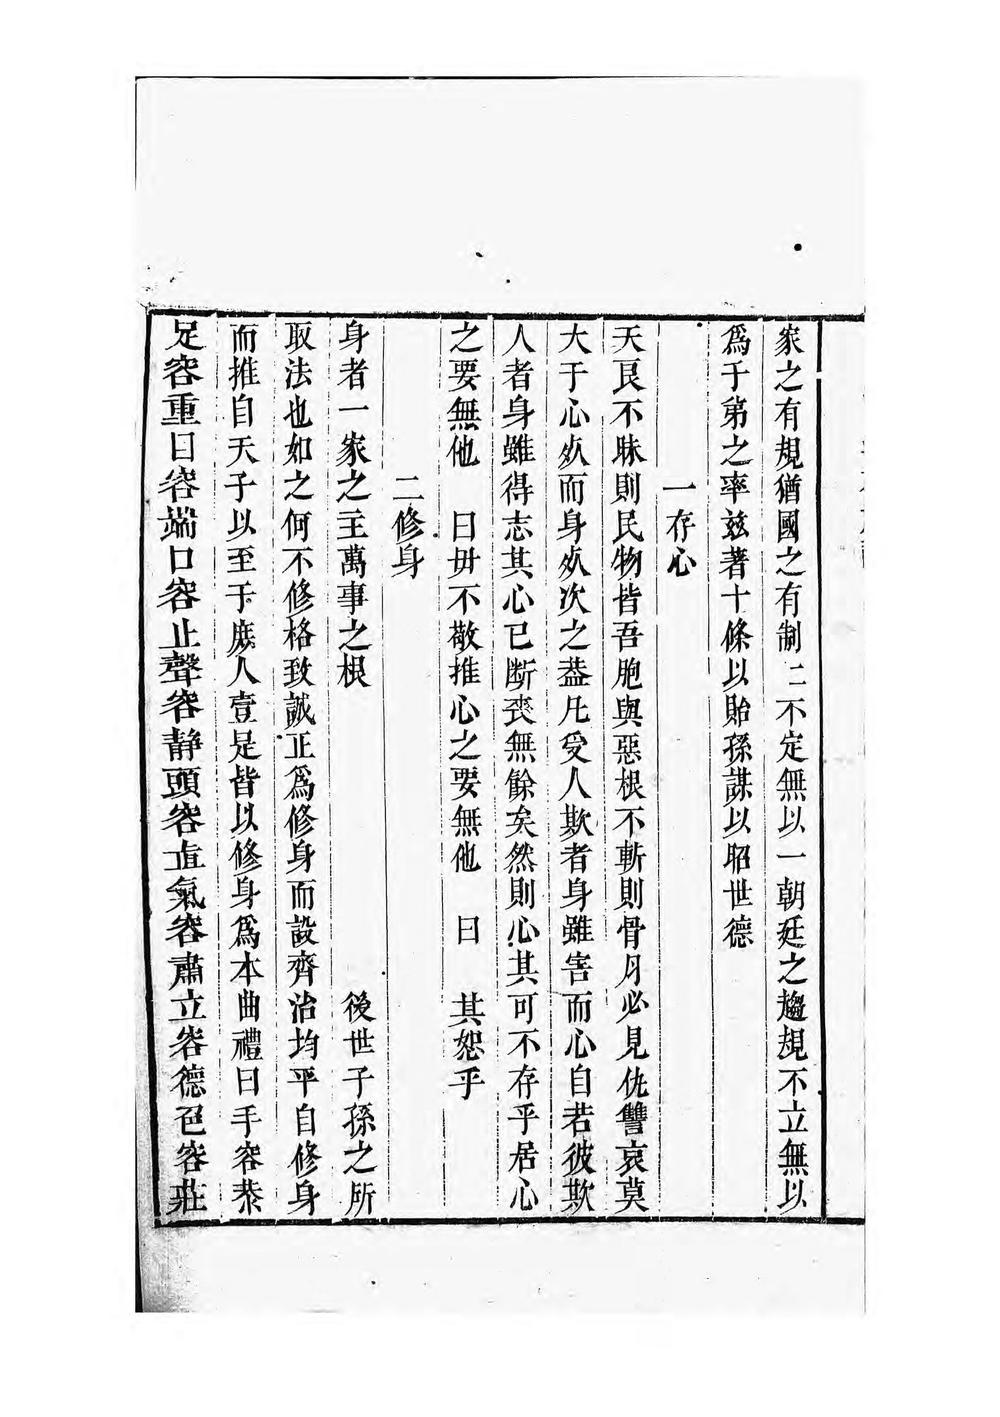 家之有規猶國之有制二不定無以一朝廷之趨規不立無以
爲子弟之率兹著十條以貽孫謀以昭世德
一存心
天良不昧則民物皆吾胞與惡根不斬則骨月必見仇讐哀莫
大于心死而身死次之葢凡受人欺者身雖害而心自若彼欺
人者身雖得志其心已断喪無餘矣然則心其可不存乎居心
之要無他 曰毋不敬推心之要無他 曰 其恕乎
二修身
身者一家之主萬事之根 後世子孫之所
取法也如之何不修格致誠正爲修身而設齊治均平自修身
而推自天子以至于庶人壹是皆以修身爲本曲禮曰手容恭
足容重目容端口容止聲容静頭容直氣容肅立容德色容莊